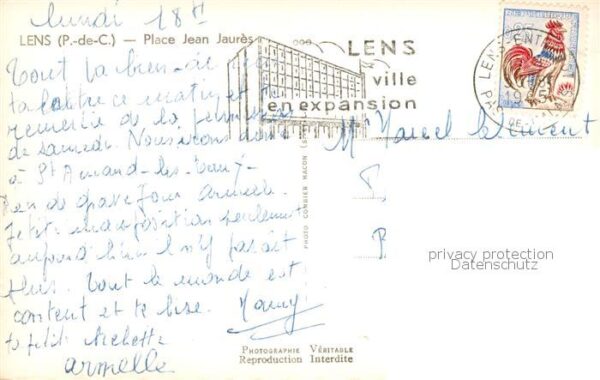 lundi 18h
LENS (P.-de-C.) — Place Jean Jaurès
LENS
ville
en expansion
LENS
Tout va bien
ta lettre ce matin et te
remercie de la
de samedi. Nous irons donc
à St Amand-les-Eaux.
Rien de grave pour Armelle.
Petite indisposition seulement
aujourd'hui il n'y paraît
plus. Tout le monde est
content et te bise. Mamy
ta petite
armelle
Mr Marcel Clément
PHOTO. COMBIER MACON
privacy protection
Datenschutz
PHOTOGRAPHIE VÉRITABLE
Reproduction Interdite